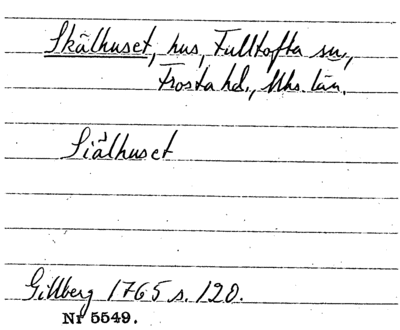 Skälhuset, hus, Fulltofta sn.,
Frosta hd., Mhs. län.
Siälhuset
Gillberg 1765 s. 120.
Nr 5549.